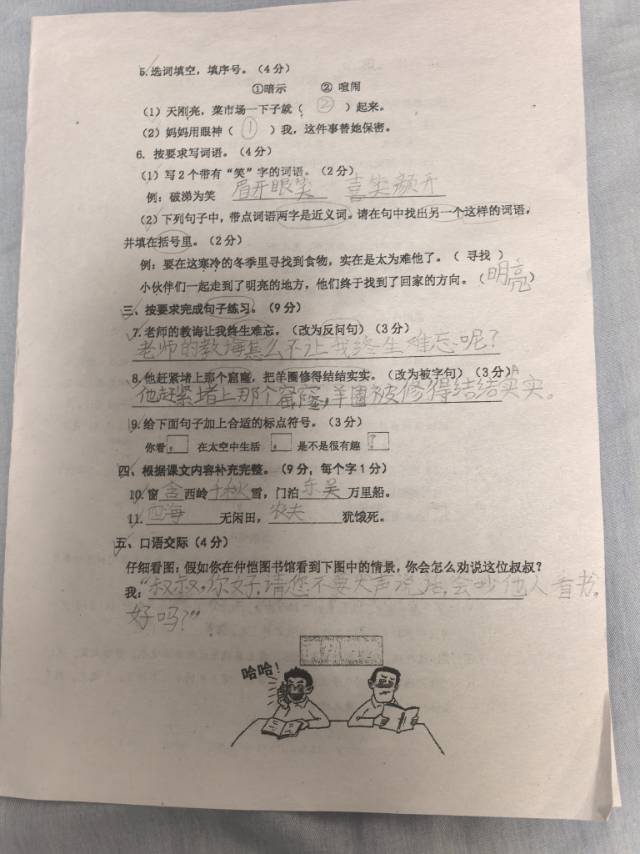 5.选词填空，填序号。（4分）
①暗示 ② 喧闹
（1）天刚亮，菜市场一下子就（ ② ）起来。
（2）妈妈用眼神（ ① ）我，这件事替她保密。
6. 按要求写词语。（4分）
（1）写2个带有“笑”字的词语。（2分）
例：破涕为笑 眉开眼笑 喜笑颜开
（2）下列句子中，带点词语两字是近义词。请在句中找出另一个这样的词语，
并填在括号里。（2分）
例：要在这寒冷的冬季里寻找到食物，实在是太为难他了。（ 寻找 ）
小伙伴们一起走到了明亮的地方，他们终于找到了回家的方向。（明亮）
三、按要求完成句子练习。（9分）
7.老师的教诲让我终生难忘。（改为反问句）（3分）
老师的教诲怎么不让我终生难忘呢？
8.他赶紧堵上那个窟窿，把羊圈修得结结实实。（改为被字句）（3分）
他赶紧堵上那个窟窿，羊圈被修得结结实实。
9.给下面句子加上合适的标点符号。（3分）
你看， 在太空中生活， 是不是很有趣？
四、根据课文内容补充完整。（9分，每个字1分）
10.窗含西岭千秋雪，门泊东吴万里船。
11.四海无闲田，农夫犹饿死。
五、口语交际（4分）
仔细看图：假如你在仲恺图书馆看到下图中的情景，你会怎么劝说这位叔叔？
我：“叔叔，你好，请您不要大声说话，会吵他人看书，
好吗？”
哈哈！